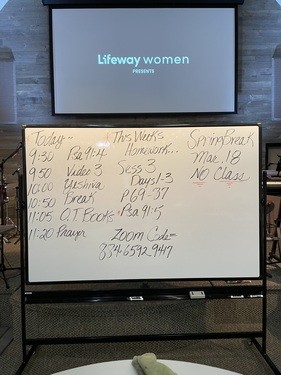 Lifeway women
PRESENTS
Today~
9:30 Psa 91:4
9:50 Video 3
10:00 Yeshiva
10:50 Break
11:05 O.T. Books
11:20 Prayer
This Week's
Homework...
Sess. 3
Days 1-3
P. 69-37
Psa 91:5
Zoom Code=
834-6592-9417
Spring Break
Mar. 18
NO Class